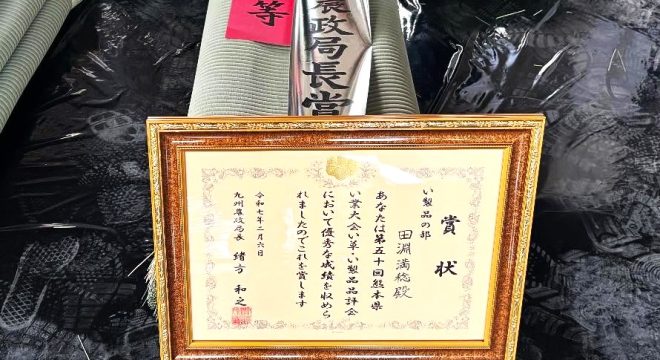 等
農政局長賞
賞状
い製品の部
田淵満稔殿
あなたは第五十回熊本県
い業大会い草・い製品品評会
において優秀な成績を収めら
れましたのでこれを賞します
令和七年二月六日
九州農政局長 緒方和之